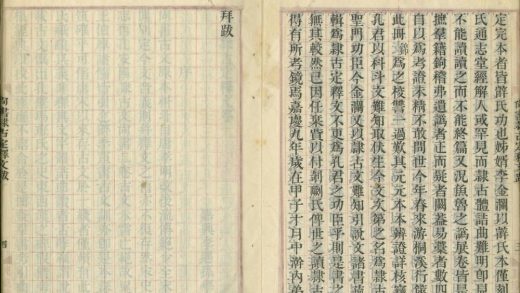 定完本者皆薛氏功也姊婿李金瀾以薛氏本僅刻
氏通志堂經解人或罕見而隸古體詰曲難明卽見
不能讀讀之而不能終篇又況魚魯之譌展卷皆是
摭羣籍鉤稽弗遺譌者正而疑者闕葢易藁者數四
自以爲考證未精不敢問世今年春來游桐溪行篋
此冊爲之校讐一過歎其元元本本辯證詳核
孔君以科斗文難知取伏生今文次第之名爲隸古
聖門功臣今金瀾又以隸古文難知引說文諸書
輯爲隸古定釋文不更爲孔君之功臣乎則是書之
無其較然已因任梨資以付剞劂氏俾世之讀隸古
得有所考鏡焉嘉慶九年歲在甲子十月中澣內弟
拜跋
尚書隸古定釋文跋
四